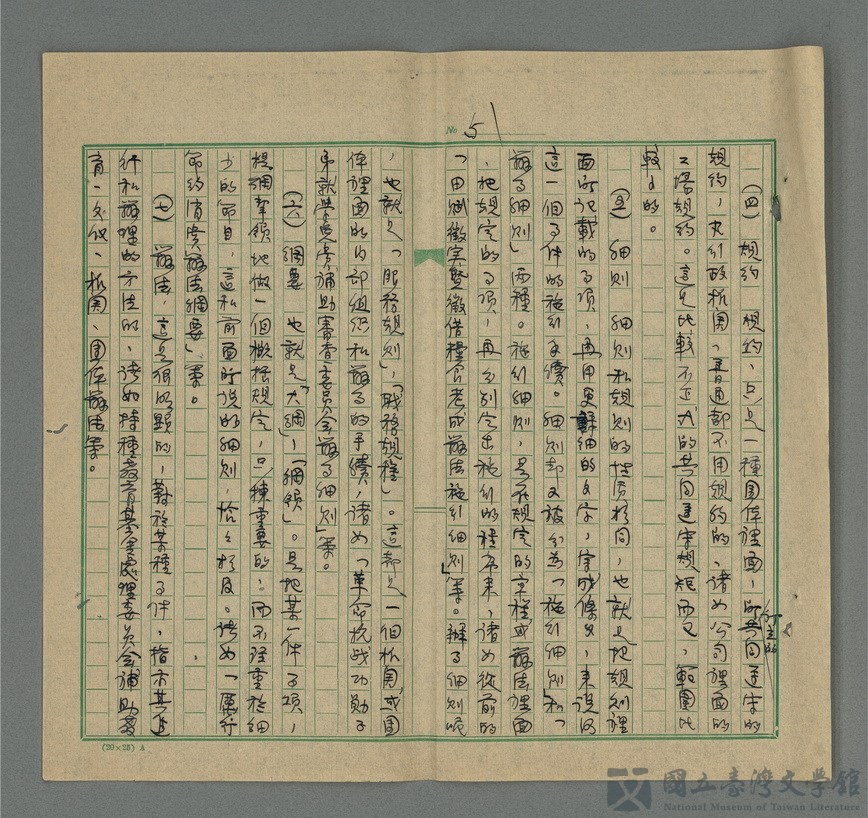 No 51
(四) 規約 規約，只是一種團体裡面，所共同遵守的
訂定的
規約，大行政機関，普通都不用規約的，諸如公司裡面的
工場規約。這是比較不正式的共同遵守規矩而已，範圍比
較小的。
(五) 細則 細則和規則的性质相同，也就是把規則裡
面所記載的事項，再用更詳細的文字，字成條文，来說明
這一個事件的施行手續。細則却又被分為「施行細則」和「
辦事細則」兩種。施行細則，是在規定的章程或辦法裡面
，把規定的事項，再分別定出施行的程序来，諸如從前的
「田賦徵实暨徵借糧食考成辦法施行細則」等。辦事細則呢
，也就是「服務規則」，「職務規程」。這都是一個机関，或團
体裡面的内部組織和辦事的手續，諸如「革命抗战功勛子
弟就学免费補助審查委員会辦事細則」等。
(六) 綱要 也就是「大綱」，「綱領」。是把某一件事項，
提綱挈領地做一個概括規定，只揀重要的，而不注重於細
小的節目，這和前面所說的細則，恰々相反。諸如「厲行
節約消费辦法綱要」等。
(七) 辦法，這是很明顯的，對於某種事件，指示其進
行和辦理的方法的，諸如特種教育基金處理委員会補助
育、文化、机関、團体辦法等。
(20×25) A
國立臺灣文學館
National Museum of Taiwan Literature